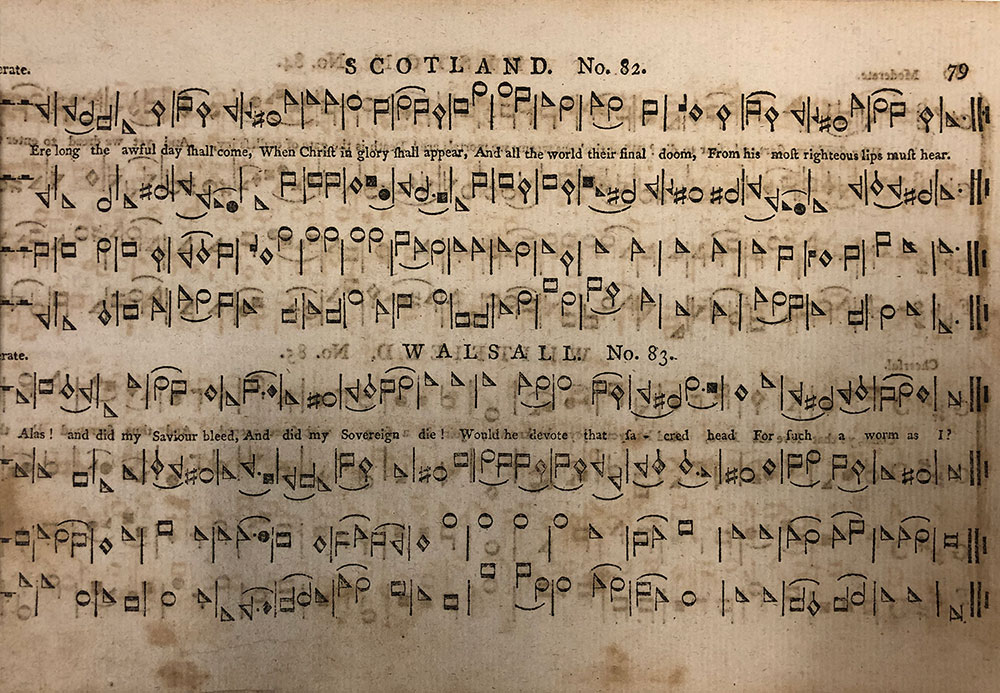 erate. SCOTLAND. No. 82. 79
Ere long the awful day ſhall come, When Chriſt in glory ſhall appear, And all the world their final doom, From his moſt righteous lips muſt hear.
rate. WALSALL. No. 83.
Alas! and did my Saviour bleed, And did my Sovereign die! Would he devote that ſa-cred head For ſuch a worm as I?